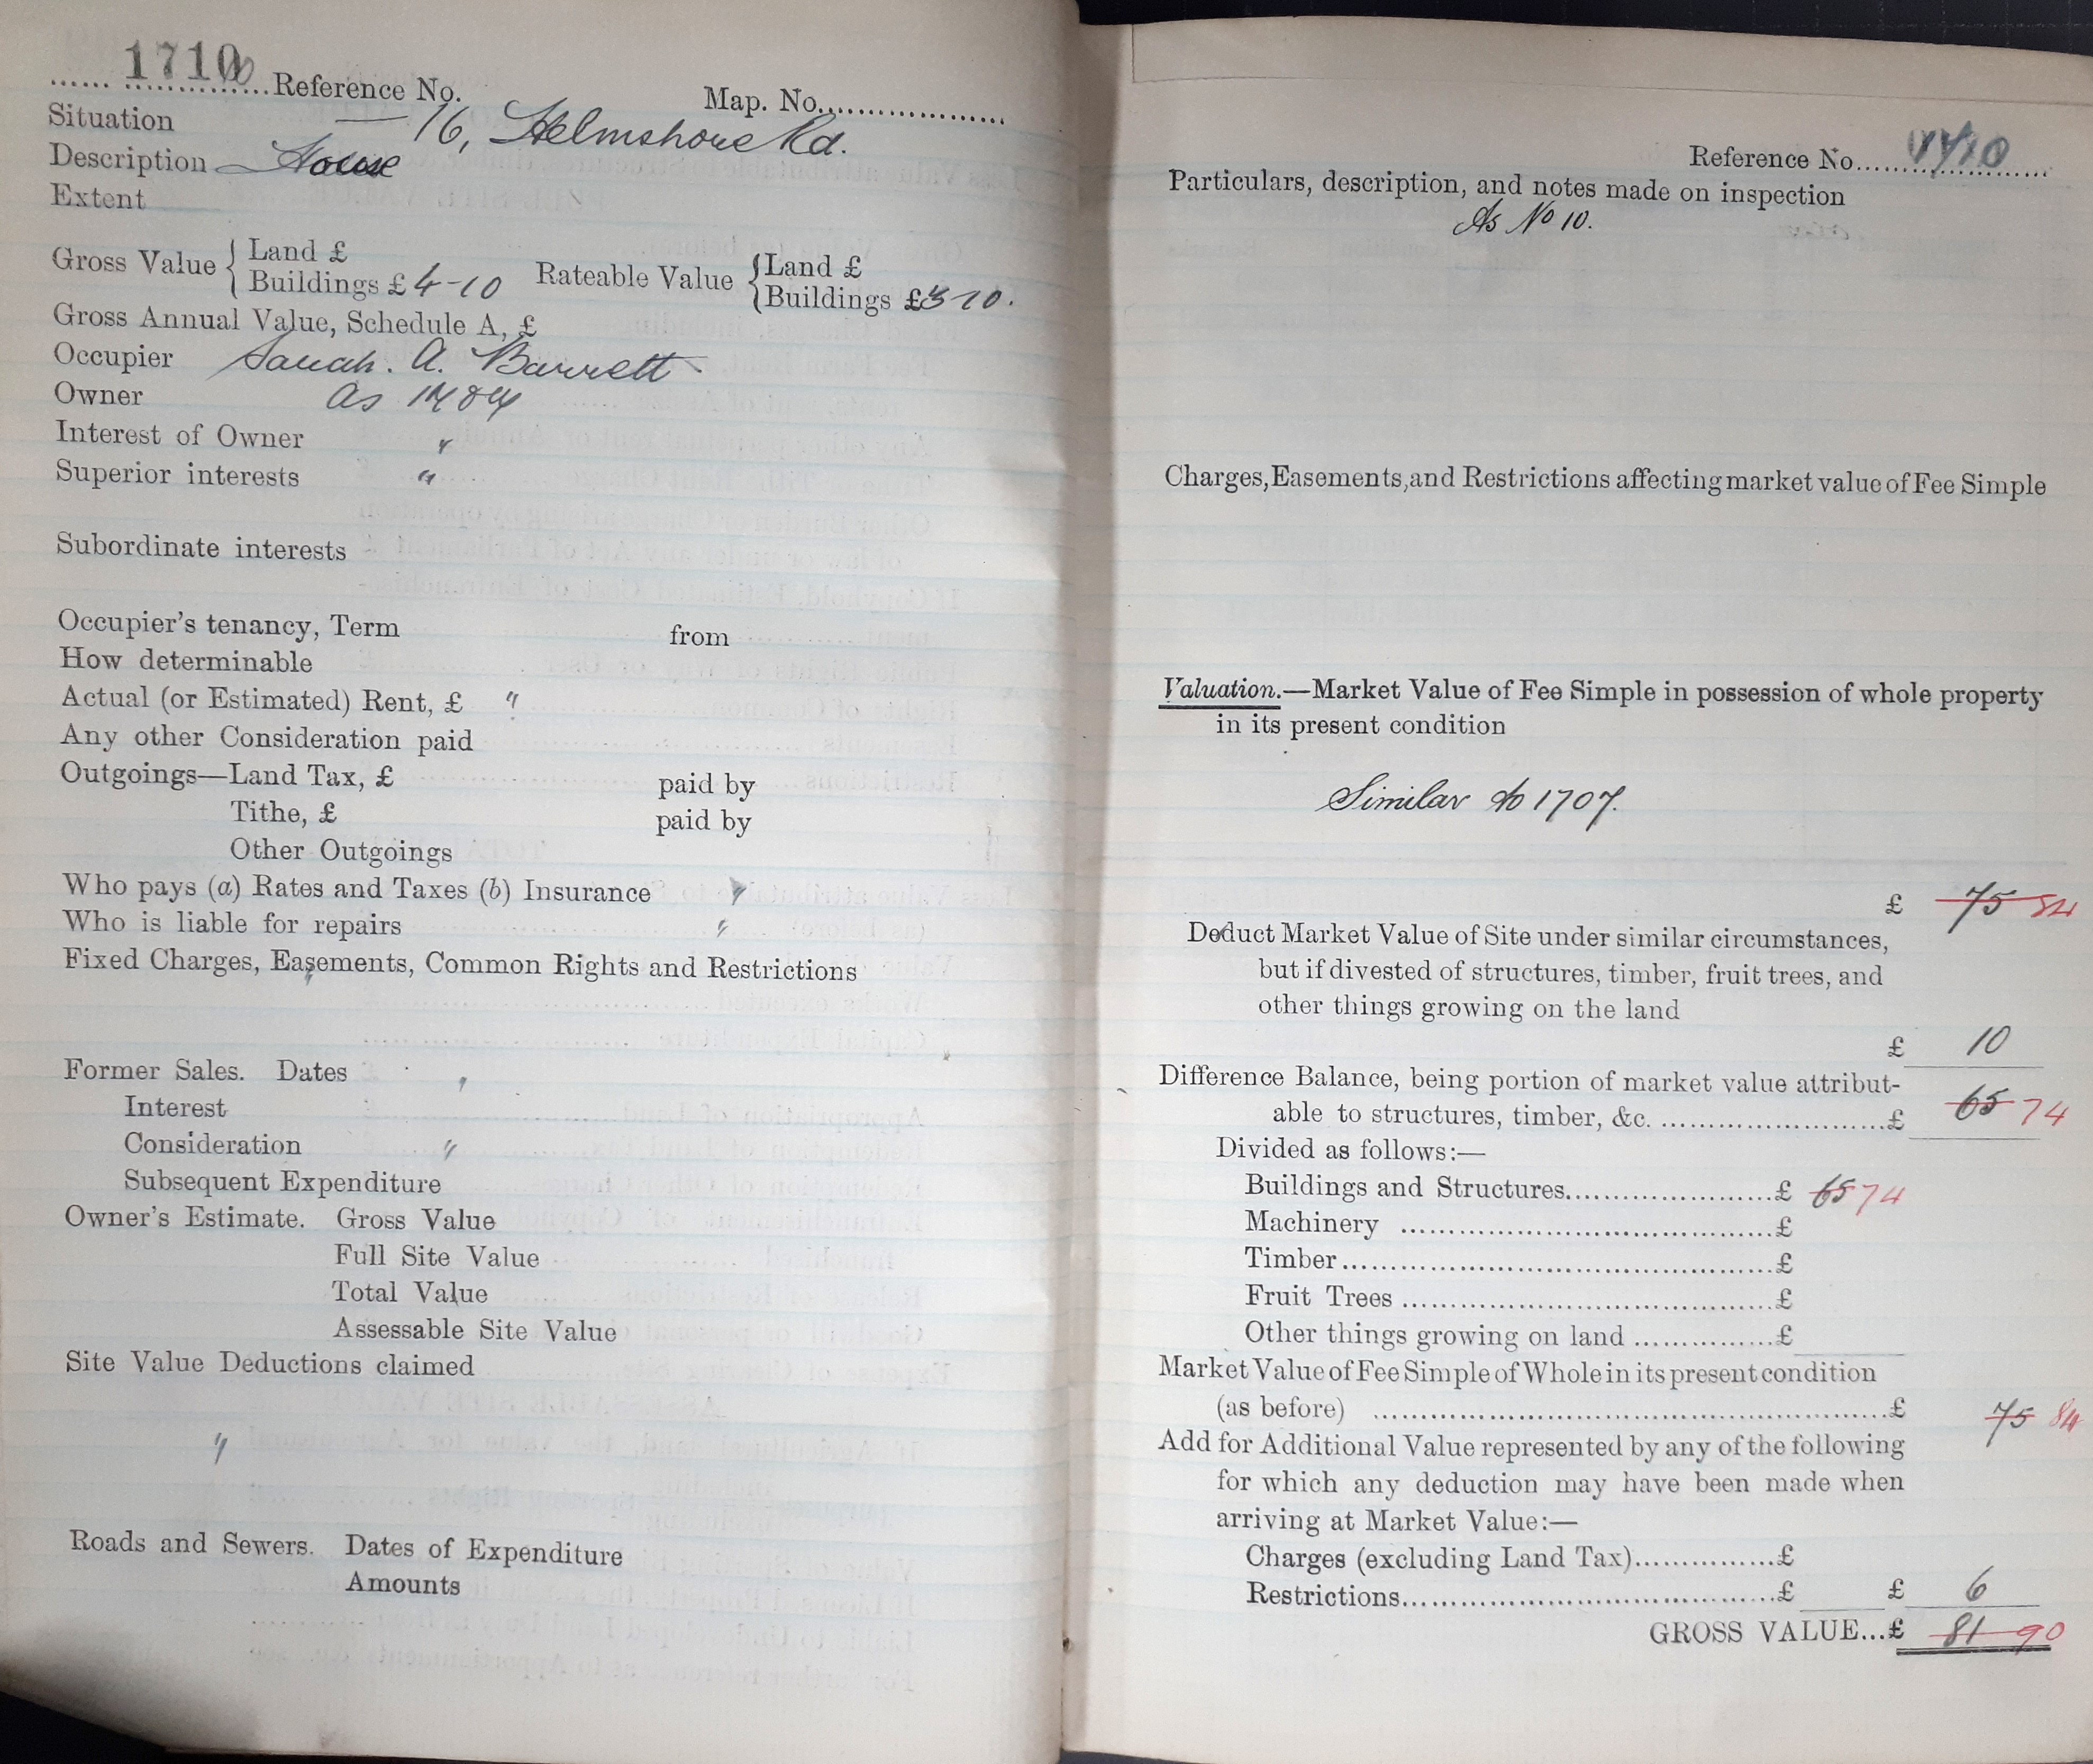 1710 Reference No. Map. No.
Situation — 16, Helmshore Rd.
Description — House
Extent
Gross Value { Land £
Buildings £ 4-10 Rateable Value { Land £
Buildings £3-10.
Gross Annual Value, Schedule A, £
Occupier Sarah. A. Barrett
Owner As
Interest of Owner "
Superior interests "
Subordinate interests
Occupier's tenancy, Term from
How determinable
Actual (or Estimated) Rent, £ "
Any other Consideration paid
Outgoings—Land Tax, £ paid by
Tithe, £ paid by
Other Outgoings
Who pays (a) Rates and Taxes (b) Insurance "
Who is liable for repairs "
Fixed Charges, Easements, Common Rights and Restrictions
"
Former Sales. Dates "
Interest
Consideration "
Subsequent Expenditure
Owner's Estimate. Gross Value
Full Site Value
Total Value
Assessable Site Value
Site Value Deductions claimed
"
Roads and Sewers. Dates of Expenditure
Amounts
Reference No. 1710
Particulars, description, and notes made on inspection
As No 10.
Charges, Easements, and Restrictions affecting market value of Fee Simple
Valuation.—Market Value of Fee Simple in possession of whole property
in its present condition
Similar to 1707.
£ 75 84
Deduct Market Value of Site under similar circumstances,
but if divested of structures, timber, fruit trees, and
other things growing on the land
£ 10
Difference Balance, being portion of market value attribut-
able to structures, timber, &c. £ 65 74
Divided as follows:—
Buildings and Structures £ 65 74
Machinery £
Timber £
Fruit Trees £
Other things growing on land £
Market Value of Fee Simple of Whole in its present condition
(as before) £ 75 84
Add for Additional Value represented by any of the following
for which any deduction may have been made when
arriving at Market Value:—
Charges (excluding Land Tax) £
Restrictions £ £ 6
GROSS VALUE...£ 81 90